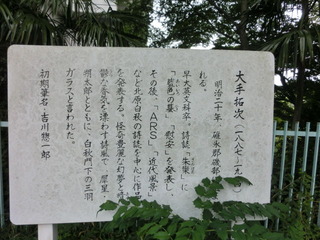 大手拓次(一八八七―一九
明治二十年、碓氷郡磯部
れる。
早大英文科卒。詩誌「朱欒」に
「藍色の蟇」「慰安」を発表し、
その後、「ARS」、「近代風景」
など北原白秋の詩誌を中心に作品
を発表する。怪奇豊麗な幻夢と
鬱な香気を漂わす詩風で、犀星
朔太郎とともに、白秋門下の三羽
ガラスと言われた。
初期筆名・吉川惣一郎